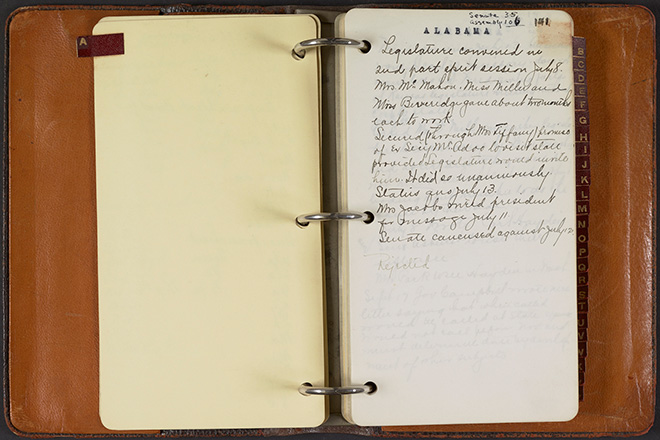 A
Senate 35
Assembly 106 141
ALABAMA
Legislature convened in
2nd part split session July 8.
Mrs Mc Mahon, Miss Miller and
Miss Beveridge gave about two months
each to work
Secured (through Mrs Tiffany) promise
of Ex Secy Mc Adoo to visit state
provided Legislature would invite
him. It did so unanimously.
July 13.
Mrs Jacobs wired president
for message July 11
Senate caucused against July 12
Rejected
B
C
D
E
F
G
H
I
J
K
L
M
N
O
P
Q
R
S
T
U
V
W